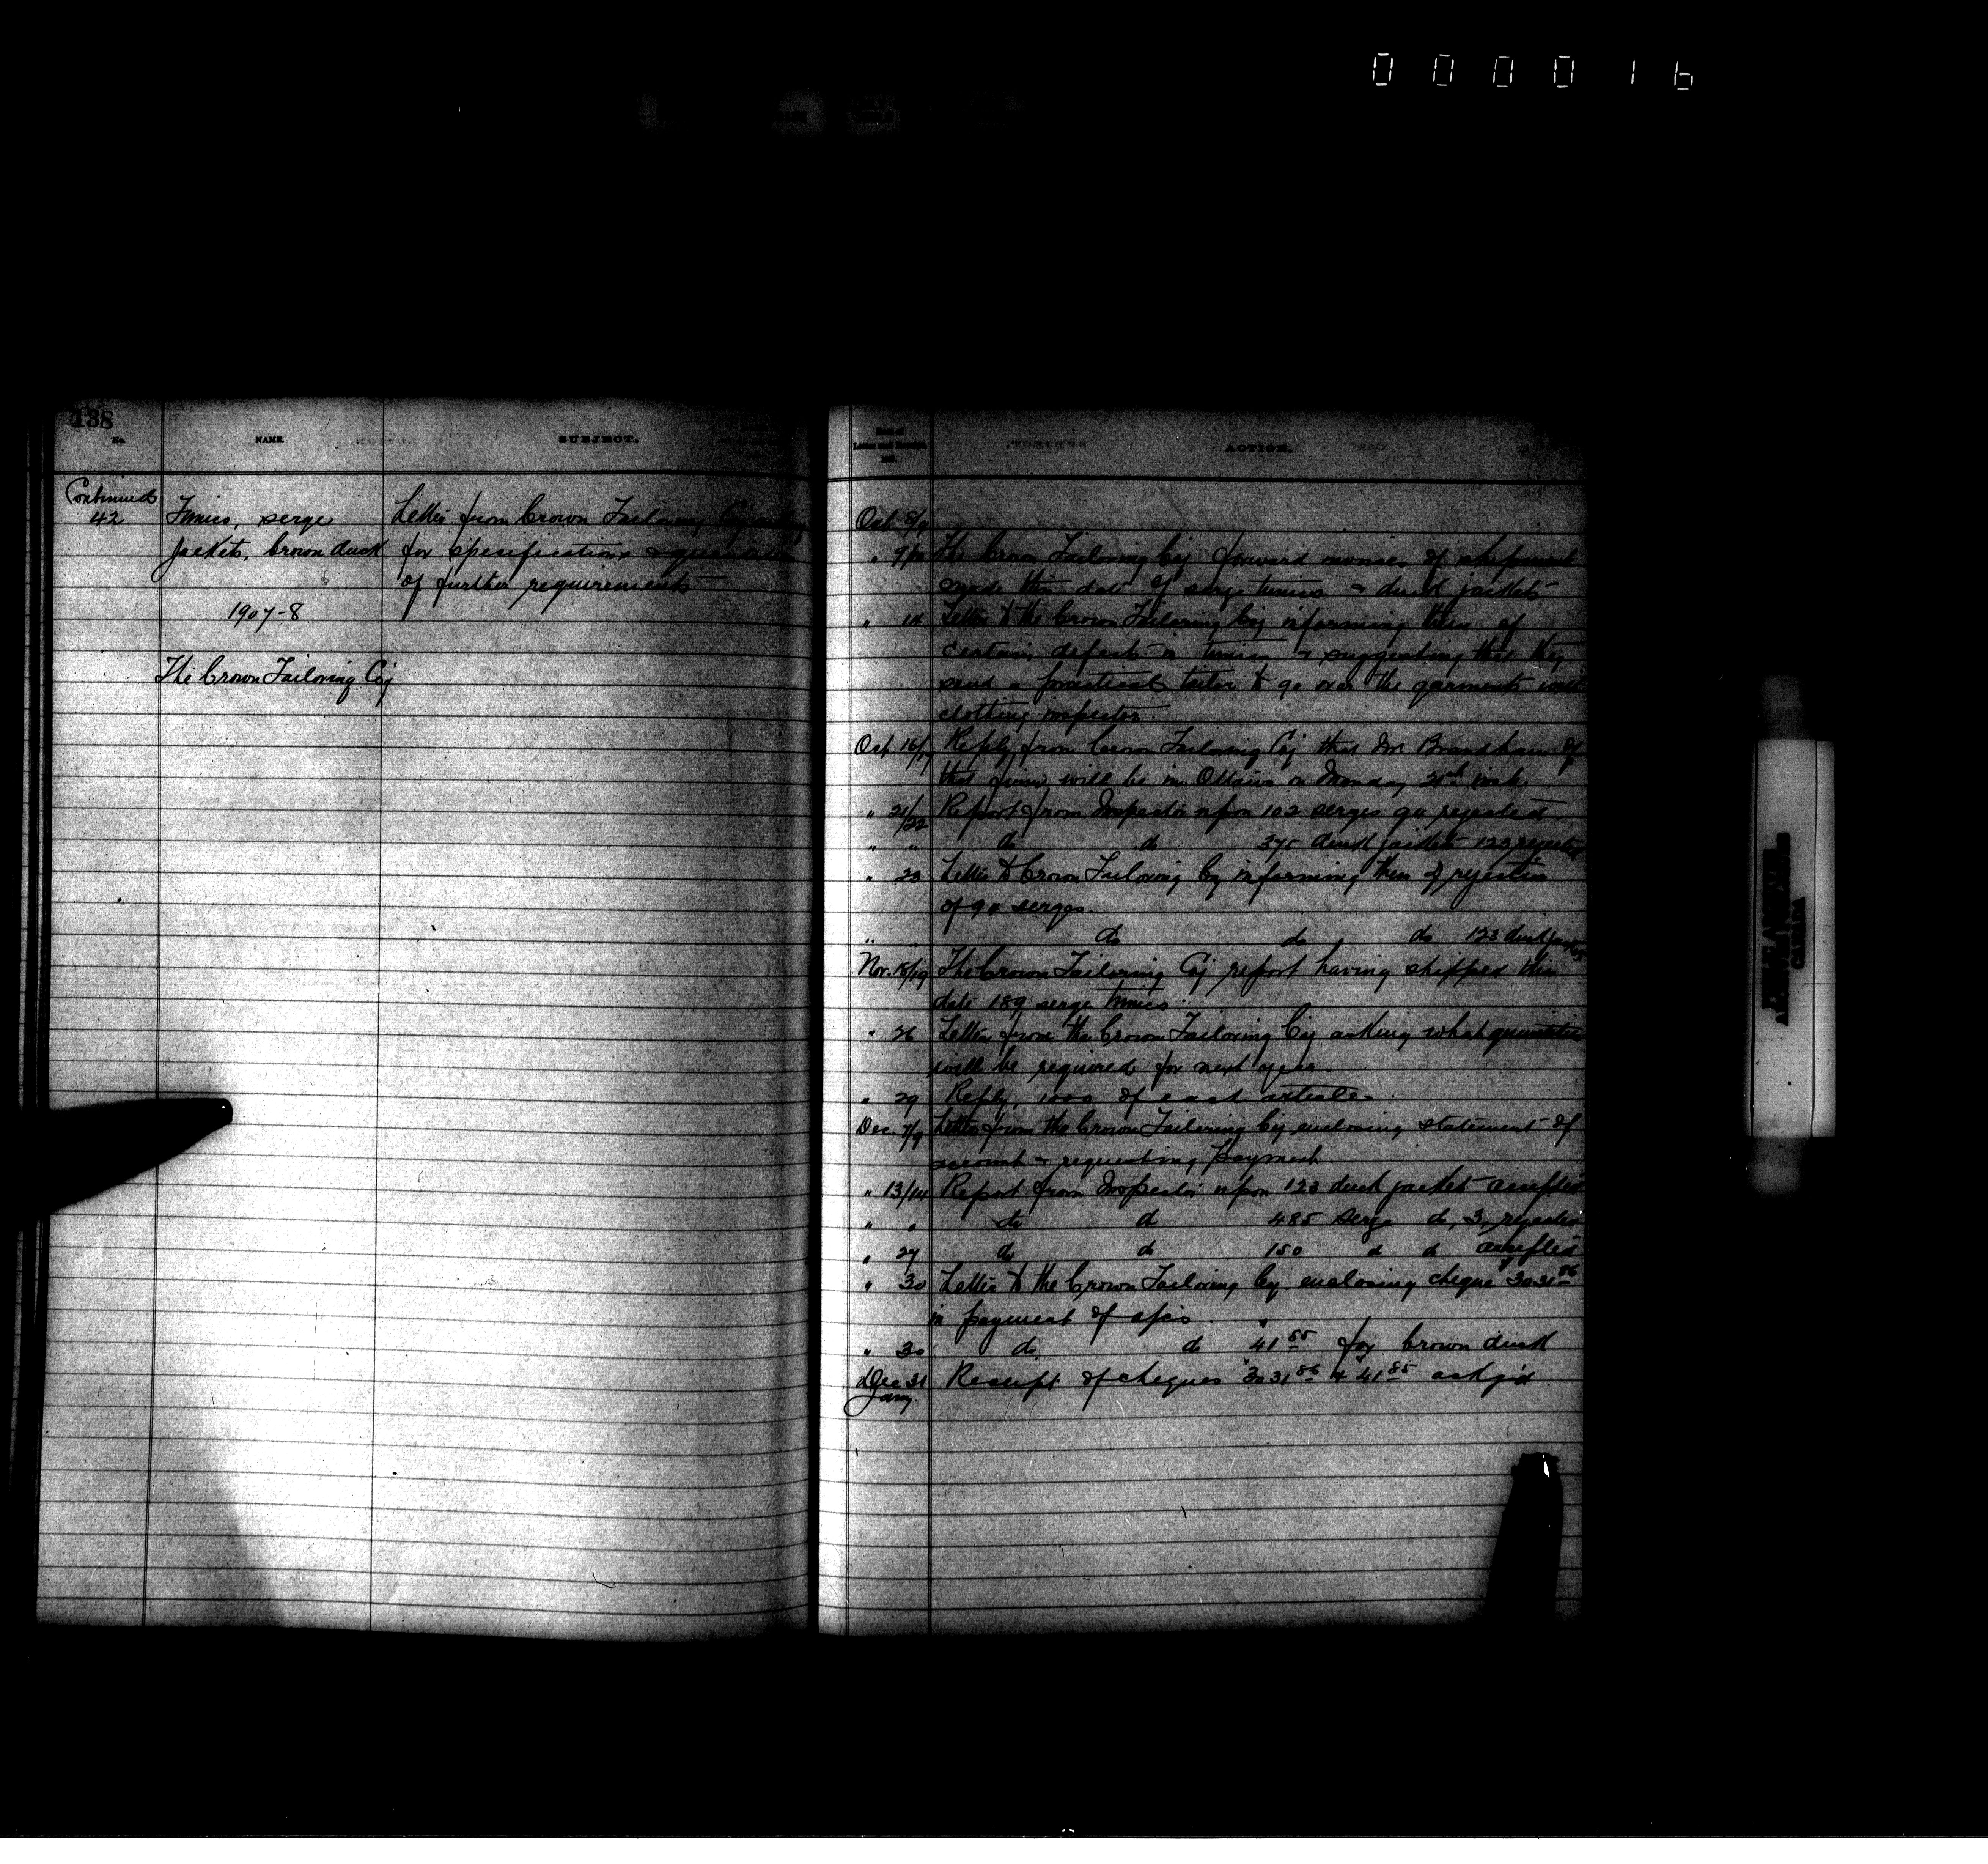 000016
138
No.
NAME.
SUBJECT.
Continued
42
Tunics, serge
Jackets, brown duck
1907-8
The Crown Tailoring Coy
Letter from Crown Tailoring Coy asking
for specifications &
of further requirements
ACTION.
Oct 8/9
" 9/10 The Crown Tailoring Coy forward invoices of shipment
made this date of serge tunics & duck jackets
" 14 Letter to the Crown Tailoring Coy informing them of
certain defects in tunics & suggesting that they
send a practical tailor to go over the garments with
clothing inspector.
Oct 16/17 Reply from Crown Tailoring Coy that Mr of
that firm will be in Ottawa on Monday 21st inst.
" 21/22 Report from Inspector upon 102 serges 90 rejected
" " do do 375 duck jackets 123 rejected
" 23 Letter to Crown Tailoring Coy informing them of rejection
of 90 serges.
" " do do do 123 duck jackets
Nov. 18/19 The Crown Tailoring Coy report having shipped this
date 189 serge tunics.
" 26 Letter from the Crown Tailoring Coy asking what quantities
will be required for next year.
" 29 Reply, 1000 of each article.
Dec. 7/9 Letter from the Crown Tailoring Coy enclosing statement of
account & requesting payment
" 13/14 Report from Inspector upon 123 duck jackets accepted
" " do do 485 serge do, 3 rejected
" 27 do do 150 do do accepted
" 30 Letter to the Crown Tailoring Coy enclosing cheque $3031.86
in payment of a/cs.
" 30 do do $41.85 for brown duck
Dec 31 Receipt of cheques $3031.86 & $41.85 ackg'd
Jany.
CANADA